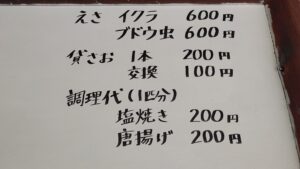 えさ イクラ 600円
ブドウ虫 600円
貸さお 1本 200円
交換 100円
調理代(1匹分)
塩焼き 200円
唐揚げ 200円